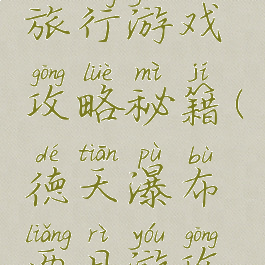 旅行游戏
gōng lüè mì jí
攻略秘籍(
dé tiān pù bù
德天瀑布
liǎng rì yóu gōng
两日游攻